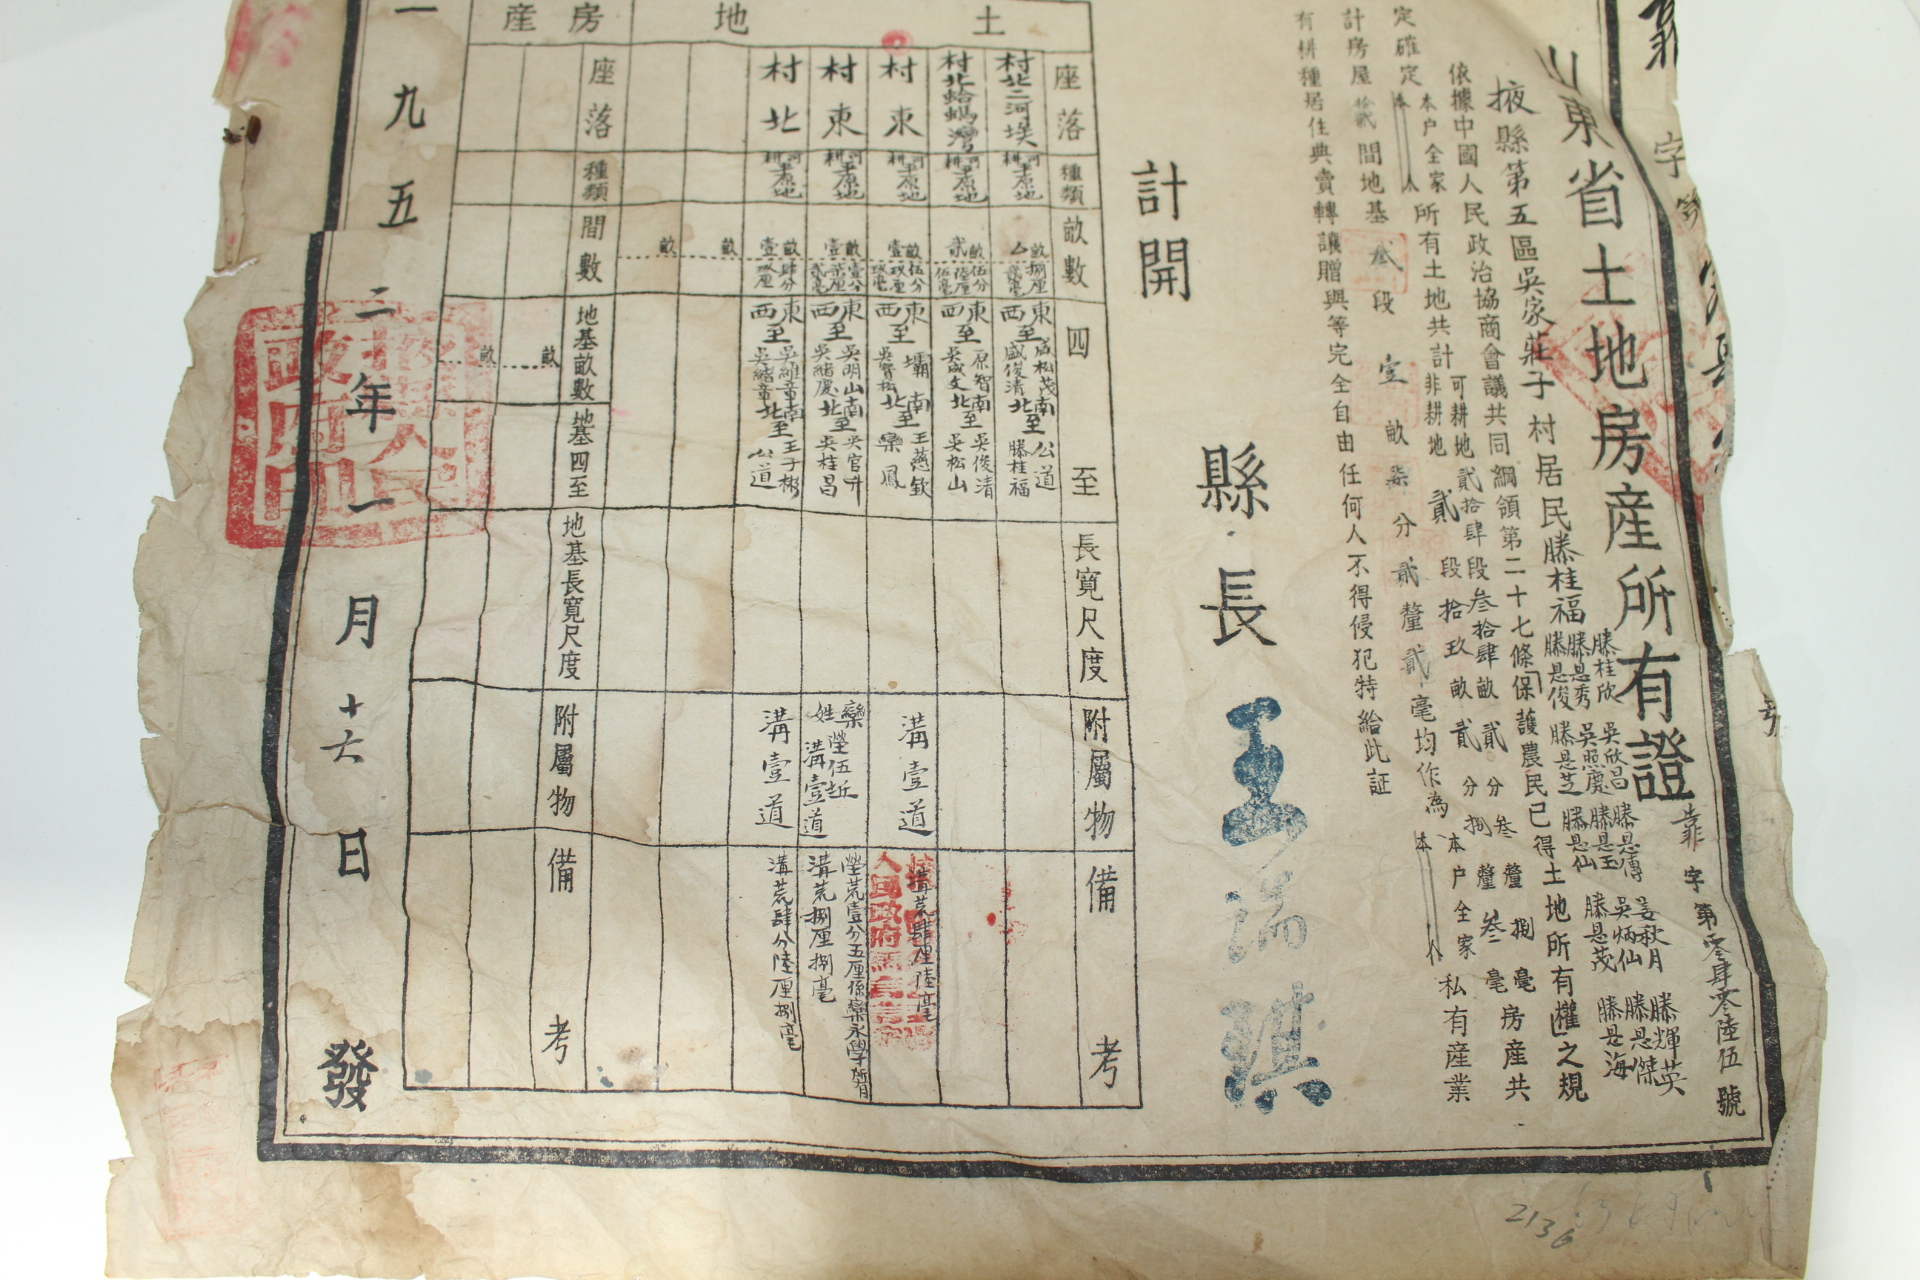 山東省土地房産所有證
靠字第零肆零陸伍號
掖縣第五區吳家莊子村居民滕桂福
滕桂欣 吳欣昌 滕是傳 姜秋月 滕輝英
滕是秀 吳照慶 滕是玉 吳炳仙 滕是傑
滕是俊 滕是芝 滕是仙 滕是茂 滕是海
依據中國人民政治協商會議共同綱領第二十七條「保護農民已得土地所有權」之規
定確定本戶全家本人所有土地共計可耕地貳拾肆段叁拾肆畝貳分叁釐捌毫
非耕地貳段拾玖畝貳分捌釐叁毫房産共
計房屋拾貳間地基叁段壹畝柒分貳釐貳毫均作為本戶全家本人私有産業
有耕種居住典賣轉讓贈與等完全自由任何人不得侵犯特給此証
計開
縣長 王瑞琪
土地
座落 種類 畝數 四至 長寬尺度 附屬物 備考
村北二河埃 河平原地耕 畝捌厘 東至成松茂 西至盛俊清 南至公道 北至滕桂福
村北蛤蟆灣 河平原地耕 貳畝伍分陸厘伍毫 東至原智 西至吳成文 南至吳俊清 北至吳松山
村東 河平原地耕 壹畝伍分玖厘玖毫 東至壩 西至吳寶松 南至王慈欽 北至欒鳳 溝壹道 溝荒肆厘陸毫
村東 河平原地耕 壹畝壹分柒厘貳毫 東至吳明山 西至吳緒慶 南至吳官升 北至吳桂昌 欒姓塋伍坵 溝壹道 塋荒壹分五厘係欒永學所有 溝荒捌厘捌毫
村北 河平原地耕 壹畝肆分玖厘 東至吳維章 西至吳緒章 南至王子彬 北至公道 溝壹道 溝荒肆分陸厘捌毫
畝
畝
房産
座落 種類 間數 地基畝數 地基四至 地基長寬尺度 附屬物 備考
畝
畝
一九五二年一月十六日發
2136